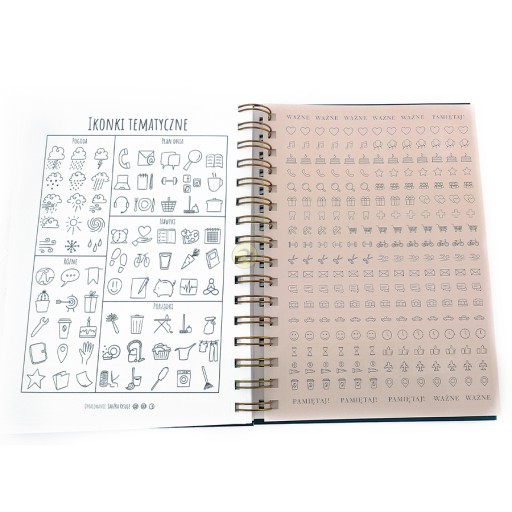 IKONKI TEMATYCZNE
POGODA
PLAN DNIA
NAWYKI
RÓŻNE
PORZĄDKI
WAŻNE WAŻNE WAŻNE WAŻNE WAŻNE PAMIĘTAJ!
PAMIĘTAJ! PAMIĘTAJ! PAMIĘTAJ! WAŻNE WAŻNE